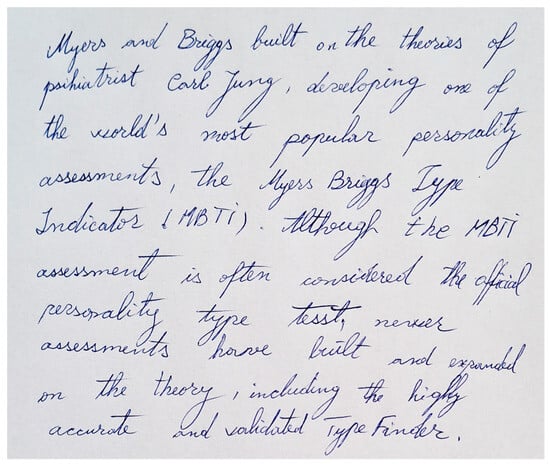 Myers and Briggs built on the theories of
psihiatrist Carl Jung, developing one of
the world's most popular personality
assessments, the Myers Briggs Type
Indicator (MBTi). Although the MBTi
assessment is often considered the official
personality type tesst, newer
assessments have built and expanded
on the theory, including the highly
accurate and validated Type Finder.